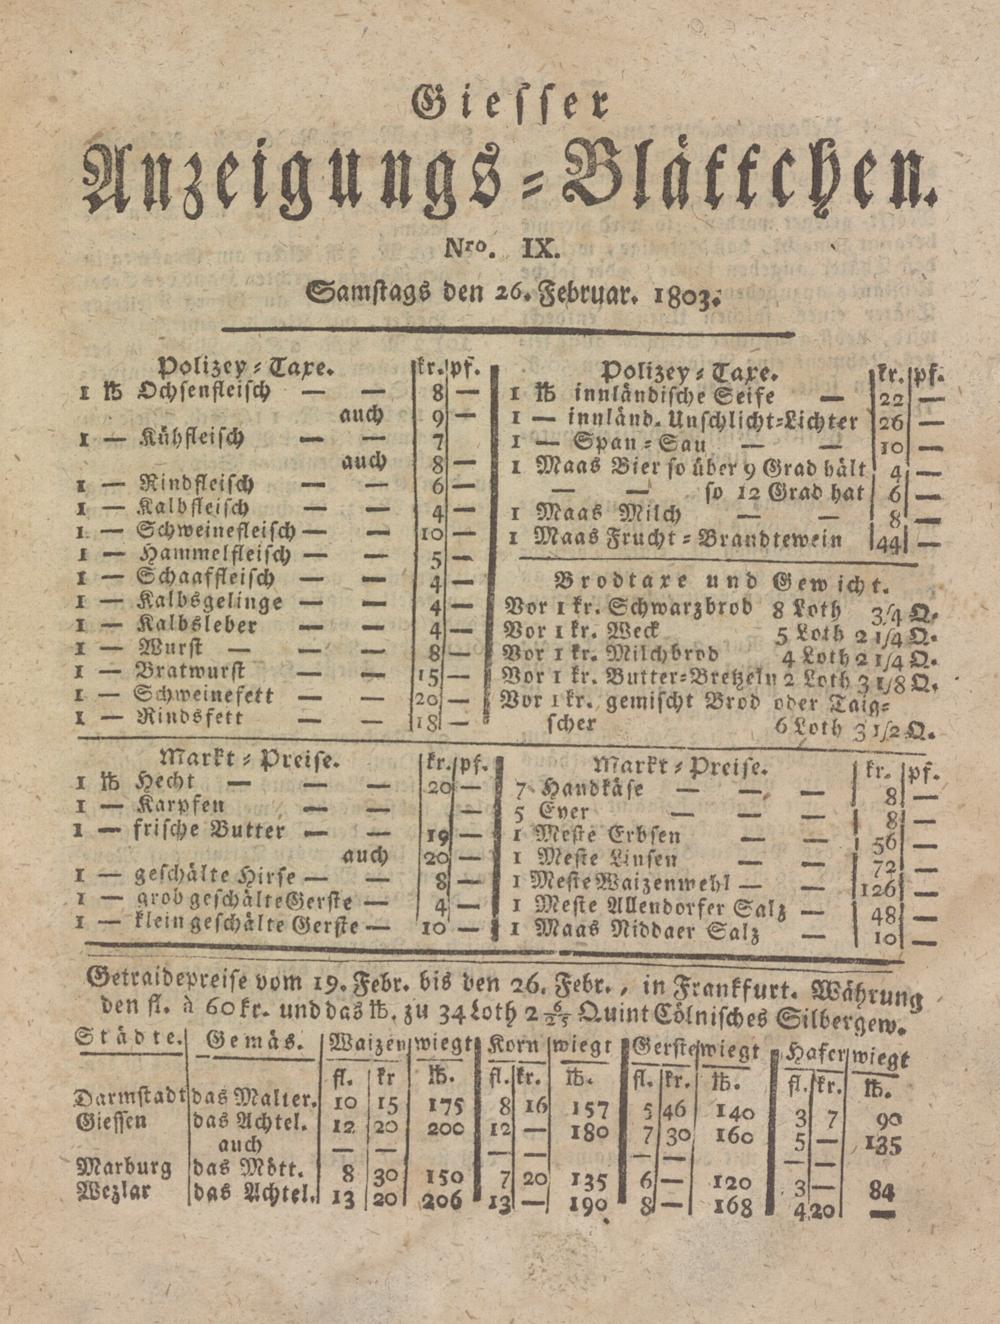 Giesser
Anzeigungs-Blättchen.
Nro. IX.
Samstags den 26. Februar. 1803.
Polizey-Taxe. kr. pf.
1 ℔ Ochsenfleisch — — 8 —
auch 9 —
1 — Kühfleisch — — 7
auch 8 —
1 — Rindfleisch — — 6 —
1 — Kalbfleisch — — 4 —
1 — Schweinefleisch — — 10 —
1 — Hammelfleisch — — 5
1 — Schaaffleisch — — 4 —
1 — Kalbsgelinge — — 4 —
1 — Kalbsleber — — 4 —
1 — Wurst — — — 8 —
1 — Bratwurst — — 15 —
1 — Schweinefett — — 20 —
1 — Rindsfett — — 18 —
Polizey-Taxe. kr. pf.
1 ℔ innländische Seife — 22 —
1 — innländ. Unschlicht-Lichter 26 —
1 — Span-Sau — — 10 —
1 Maas Bier so über 9 Grad hält 4 —
— — so 12 Grad hat 6 —
1 Maas Milch — — 8 —
1 Maas Frucht-Brandtewein 44 —
Brodtaxe und Gewicht.
Vor 1 kr. Schwarzbrod 8 Loth 3/4 Q.
Vor 1 kr. Weck 5 Loth 2 1/4 Q.
Vor 1 kr. Milchbrod 4 Loth 2 1/4 Q.
Vor 1 kr. Butter-Bretzeln 2 Loth 3 1/8 Q.
Vor 1 kr. gemischt Brod oder Taig-
scher 6 Loth 3 1/2 Q.
Markt-Preise. kr. pf.
1 ℔ Hecht — — 20 —
1 — Karpfen — — —
1 — frische Butter — — 19 —
auch 20 —
1 — geschälte Hirse — — 8 —
1 — grob geschälte Gerste — 4 —
1 — klein geschälte Gerste — 10 —
Markt-Preise. kr. pf.
7 Handkäse — — — 8 —
5 Eyer — — — 8 —
1 Meste Erbsen — — 56 —
1 Meste Linsen — — 72 —
1 Meste Waizenmehl — — 126 —
1 Meste Allendorfer Salz — 48 —
1 Maas Niddaer Salz — 10 —
Getraidepreise vom 19. Febr. bis den 26. Febr., in Frankfurt. Währung
den fl. à 60 kr. und das ℔. zu 34 Loth 2 6/25 Quint Cölnisches Silbergew.
Städte. Gemäs. Waizen wiegt Korn wiegt Gerste wiegt Hafer wiegt
fl. kr ℔. fl. kr. ℔. fl. kr. ℔. fl. kr. ℔.
Darmstadt das Malter. 10 15 175 8 16 157 5 46 140 3 7 90
Giessen das Achtel. 12 20 200 12 — 180 7 30 160 5 — 135
auch — — — — — — — —
Marburg das Mött. 8 30 150 7 20 135 6 — 120 3 — 84
Wezlar das Achtel. 13 20 206 13 — 190 8 — 168 4 20 —